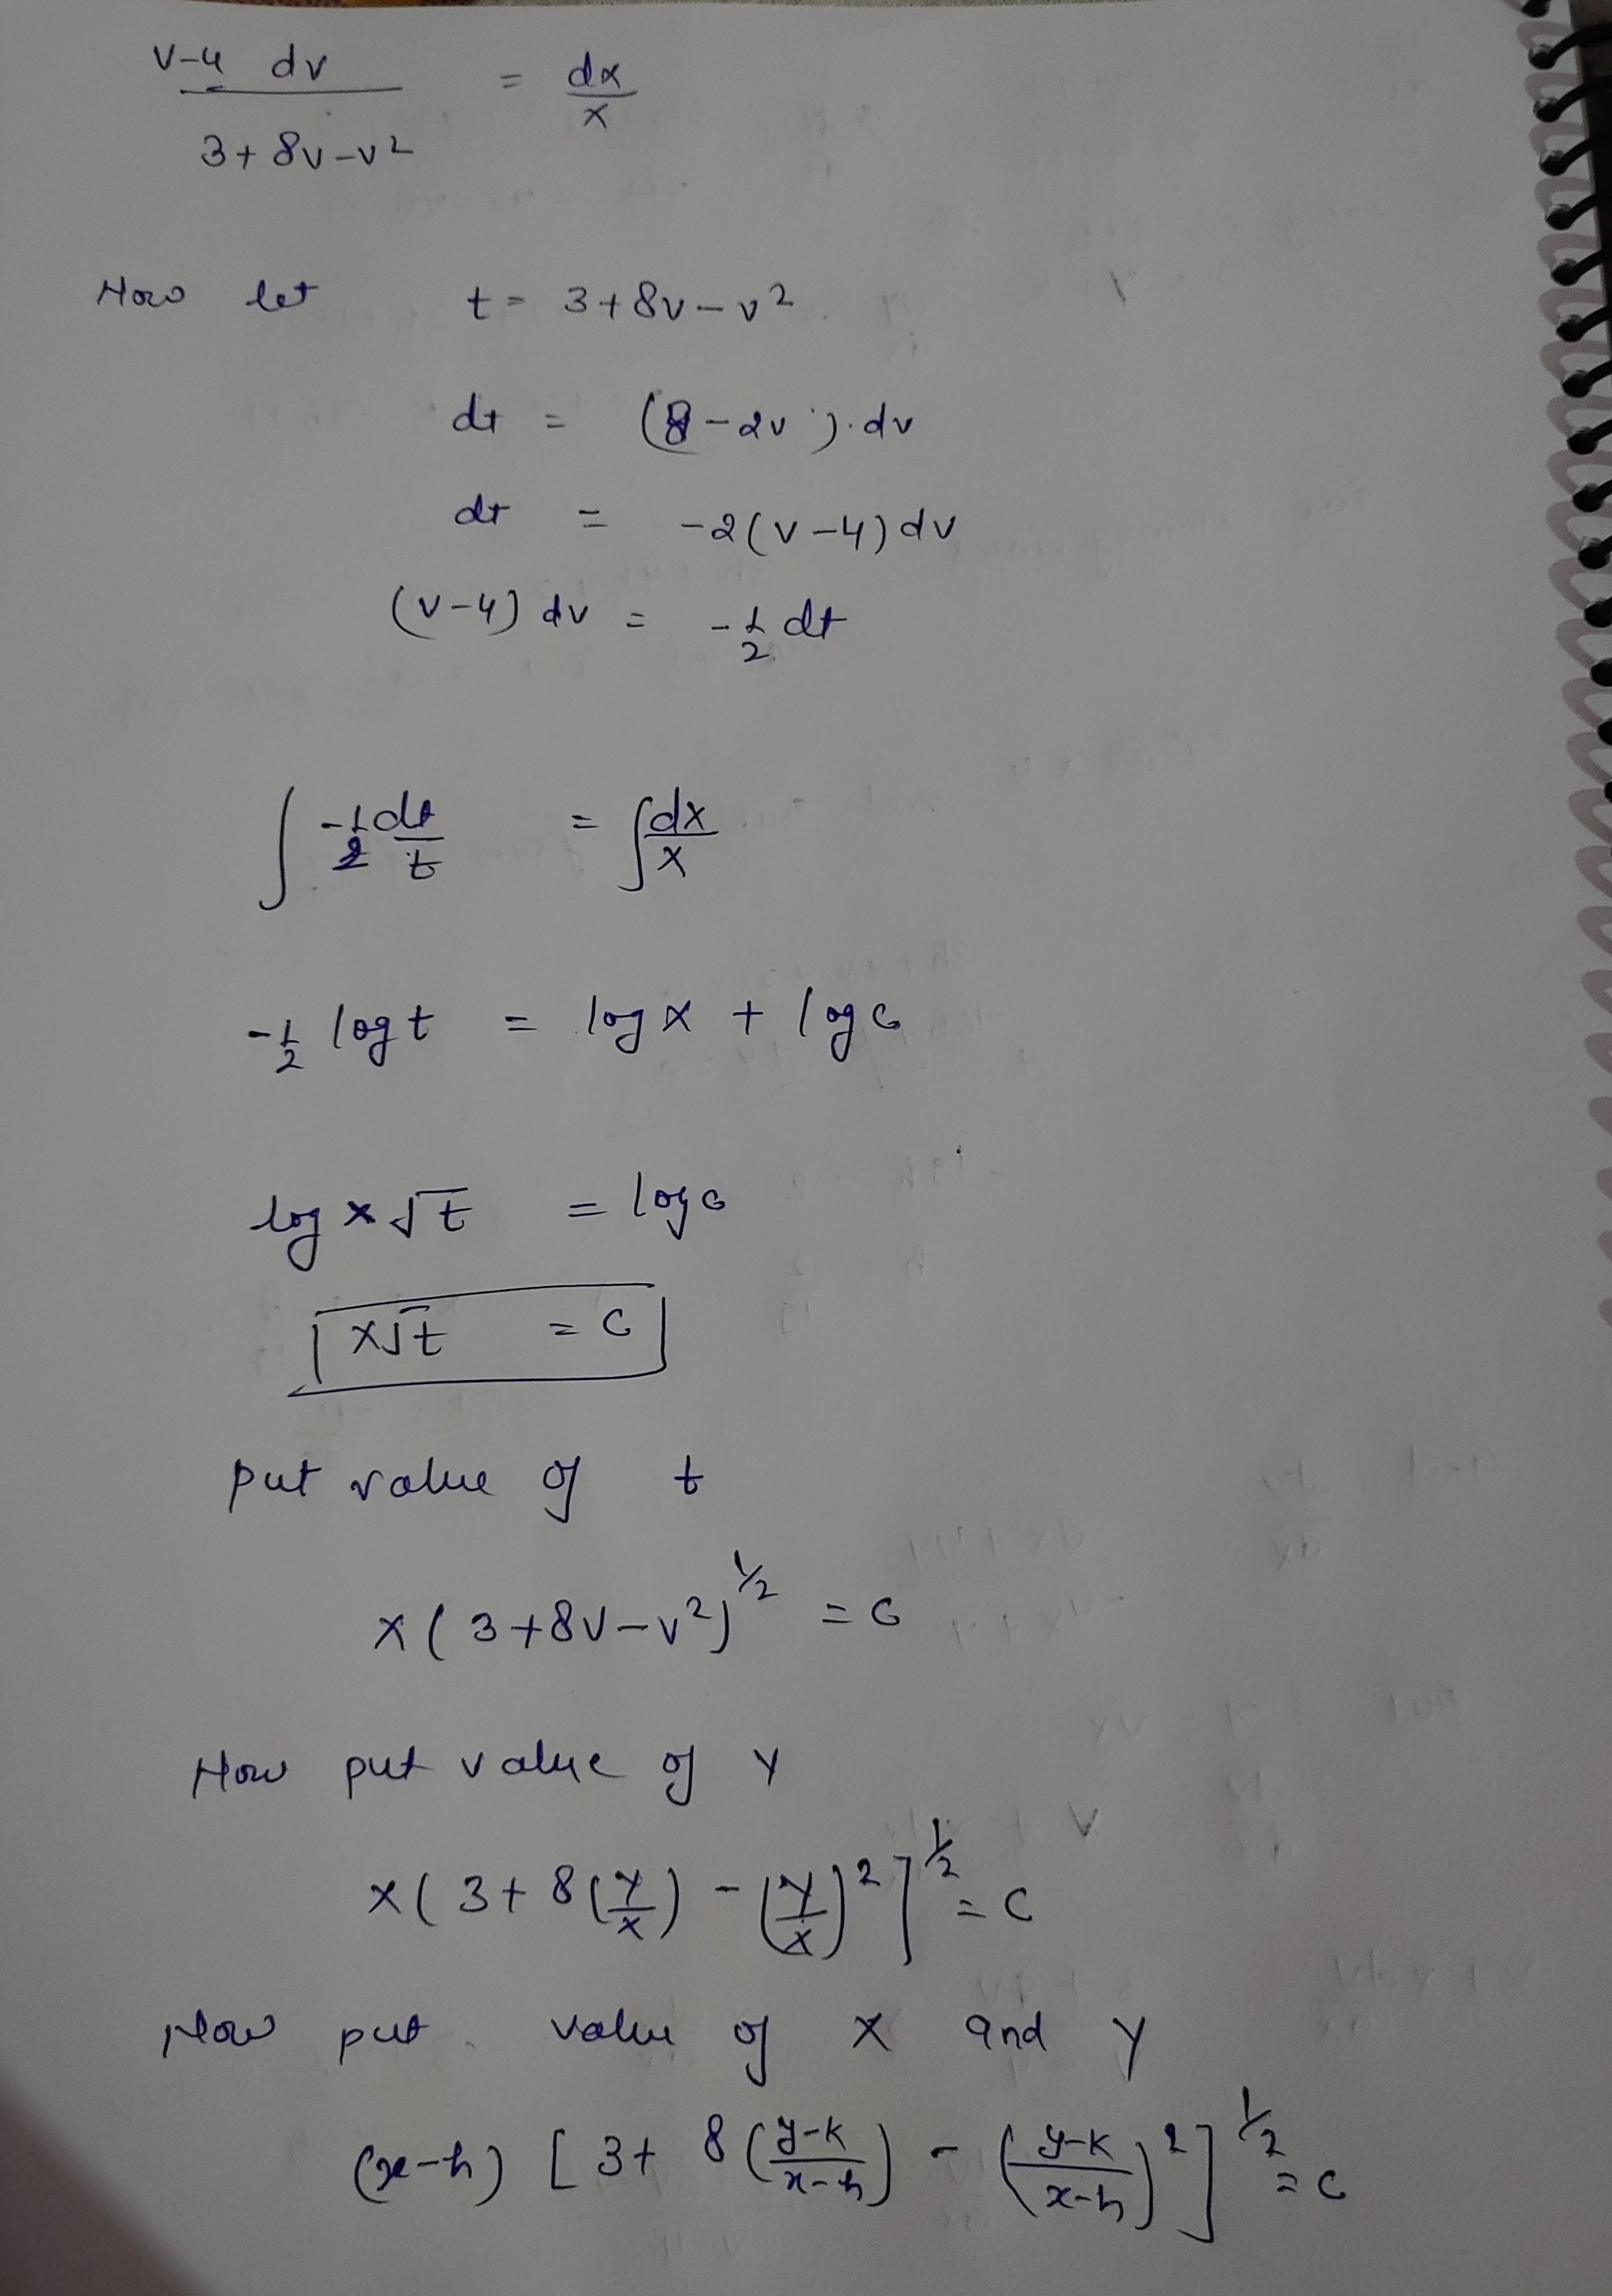 v-4 dv / 3+8v-v² = dx/x
Now let t = 3+8v-v²
dt = (8-2v).dv
dt = -2(v-4)dv
(v-4) dv = -1/2 dt
∫ -1/2 dt/t = ∫ dx/x
-1/2 log t = log x + log c
log x√t = log c
x√t = c
put value of t
x(3+8v-v²)^1/2 = c
Now put value of Y
x(3+8(Y/X) - (Y/X)²]^1/2 = c
Now put value of X and Y
(x-h) [3+ 8(y-k/x-h) - (y-k/x-h)²]^1/2 = c